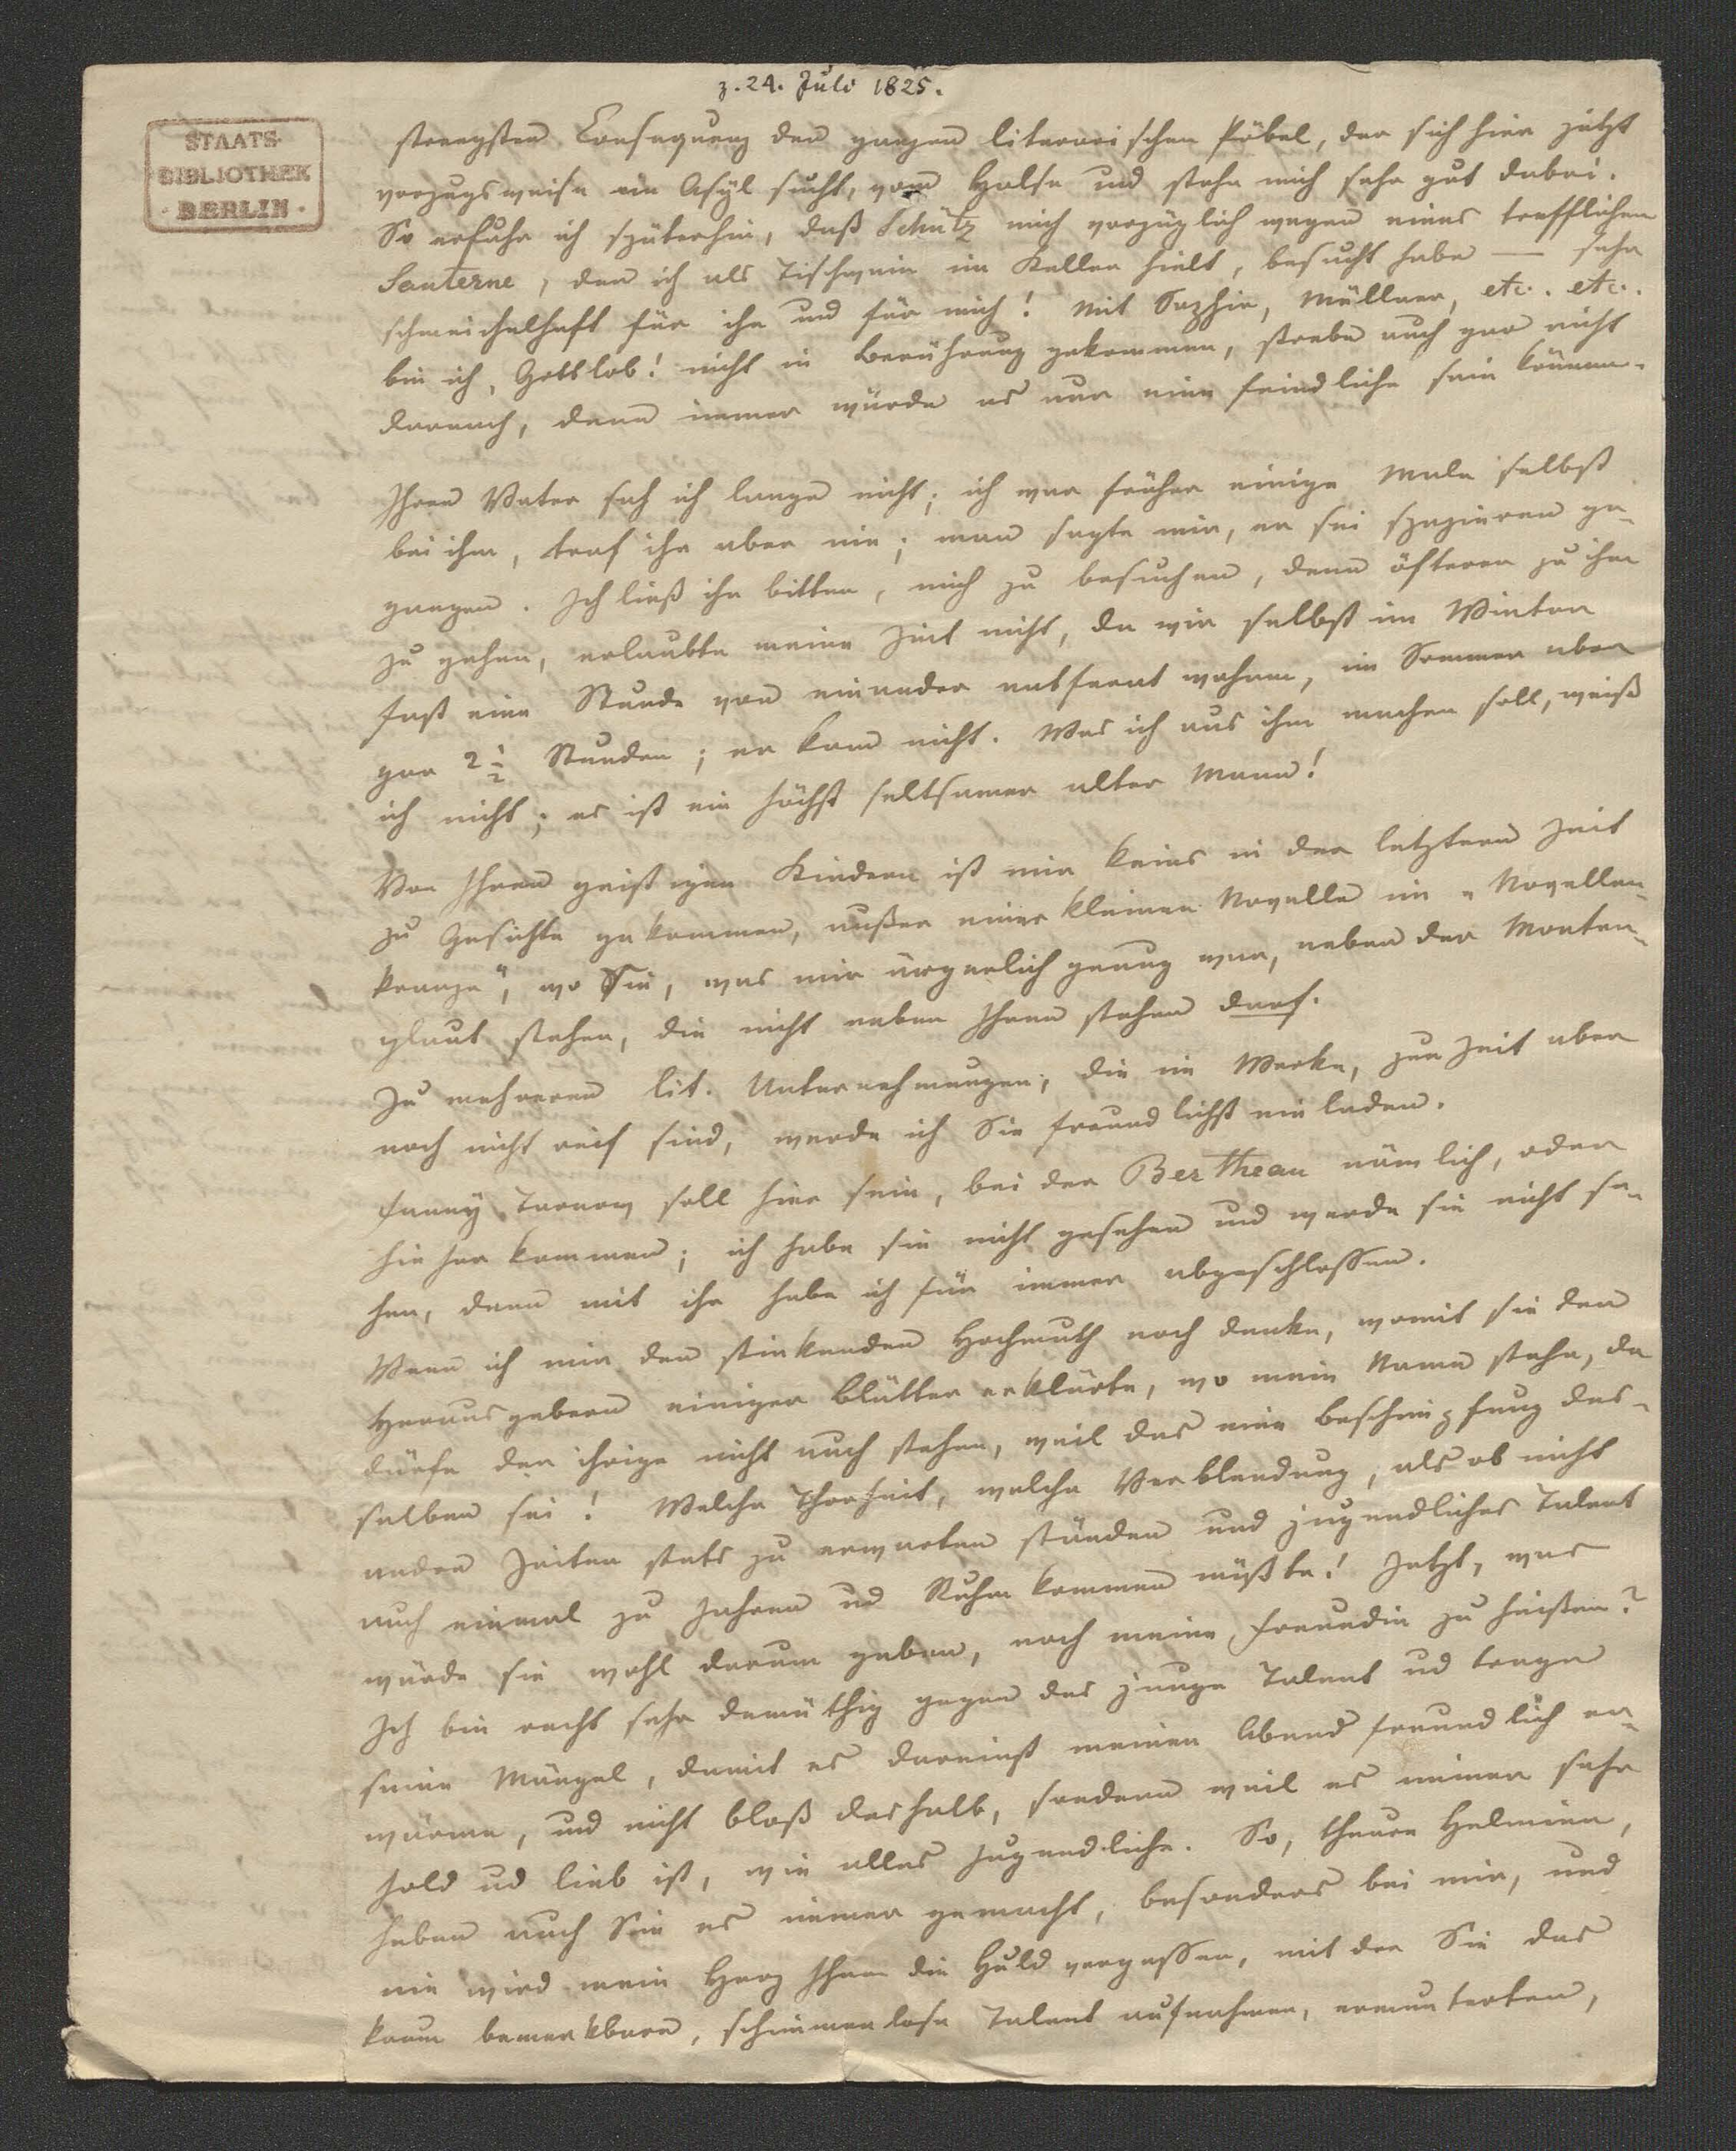 z. 24. Juli 1825.
STAATS-
BIBLIOTHEK
· BERLIN ·
strengsten Consequenz den ganzen literarischen Pöbel, der sich hier jetzt
vorzugsweise ein Asÿl sucht, vom Halse und stehe mich sehr gut dabei.
So erfuhr ich späterhin, daß Schütz mich vorzüglich wegen eines trefflichen
Sauterne, den ich als Tischwein im Keller hielt, besucht habe — sehr
schmeichelhaft für ihn und für mich! Mit Saphir, Müllner, etc. etc.
bin ich, Gottlob! nicht in Berührung gekommen, strebe auch gar nicht
darnach, denn immer würde es nur eine feindliche sein können.
Ihren Vater sah ich lange nicht; ich war früher einige Male selbst
bei ihm, traf ihn aber nie; man sagte mir, er sei spazieren ge-
gangen. Ich ließ ihn bitten, mich zu besuchen, denn öfterer zu ihm
zu gehen, erlaubte meine Zeit nicht, da wir selbst im Winter
fast eine Stunde von einander entfernt wohnen, im Sommer aber
gar 2 1/2 Stunden; er kam nicht. Was ich aus ihm machen soll, weiß
ich nicht; es ist ein höchst seltsamer alter Mann!
Von Ihren geistigen Kindern ist mir keins in der letztern Zeit
zu Gesichte gekommen, außer einer kleinen Novelle im „Novellen-
kranze“, wo Sie, was mir ärgerlich genug war, neben der Monten-
glaut stehen, die nicht neben Ihnen stehen darf.
Zu mehreren lit. Unternehmungen, die im Werke, zur Zeit aber
noch nicht reif sind, werde ich Sie freundlichst einladen.
Fanny Tarnow soll hier sein, bei der Bertheau nämlich, oder
hieher kommen; ich habe sie nicht gesehen und werde sie nicht se-
hen, denn mit ihr habe ich für immer abgeschlossen.
Wenn ich mir den stinkenden Hochmuth noch denke, womit sie den
Herausgebern einiger Blätter erklärte, wo mein Name stehe, da
dürfe der ihrige nicht auch stehen, weil das eine Beschimpfung des-
selben sei! Welche Thorheit, welche Verblendung, als ob nicht
andre Zeiten stets zu erwarten ständen und jugendliches Talent
auch einmal zu Jahren und Ruhm kommen müßte! Jetzt, was
würde sie wohl darum geben, noch meine Freundin zu heißen?
Ich bin recht sehr demüthig gegen das junge Talent und trage
seine Mängel, damit es dereinst meinen Abend freundlich er-
wärme, und nicht bloß deshalb, sondern weil es meiner sehr
hold und lieb ist, wie alles Jugendliche. So, theure Helmina,
haben auch Sie es immer gemacht, besonders bei mir, und
nie wird mein Herz Ihnen die Huld vergessen, mit der Sie das
kaum bemerkbare, schimmerlose Talent aufnahmen, ermunterten,